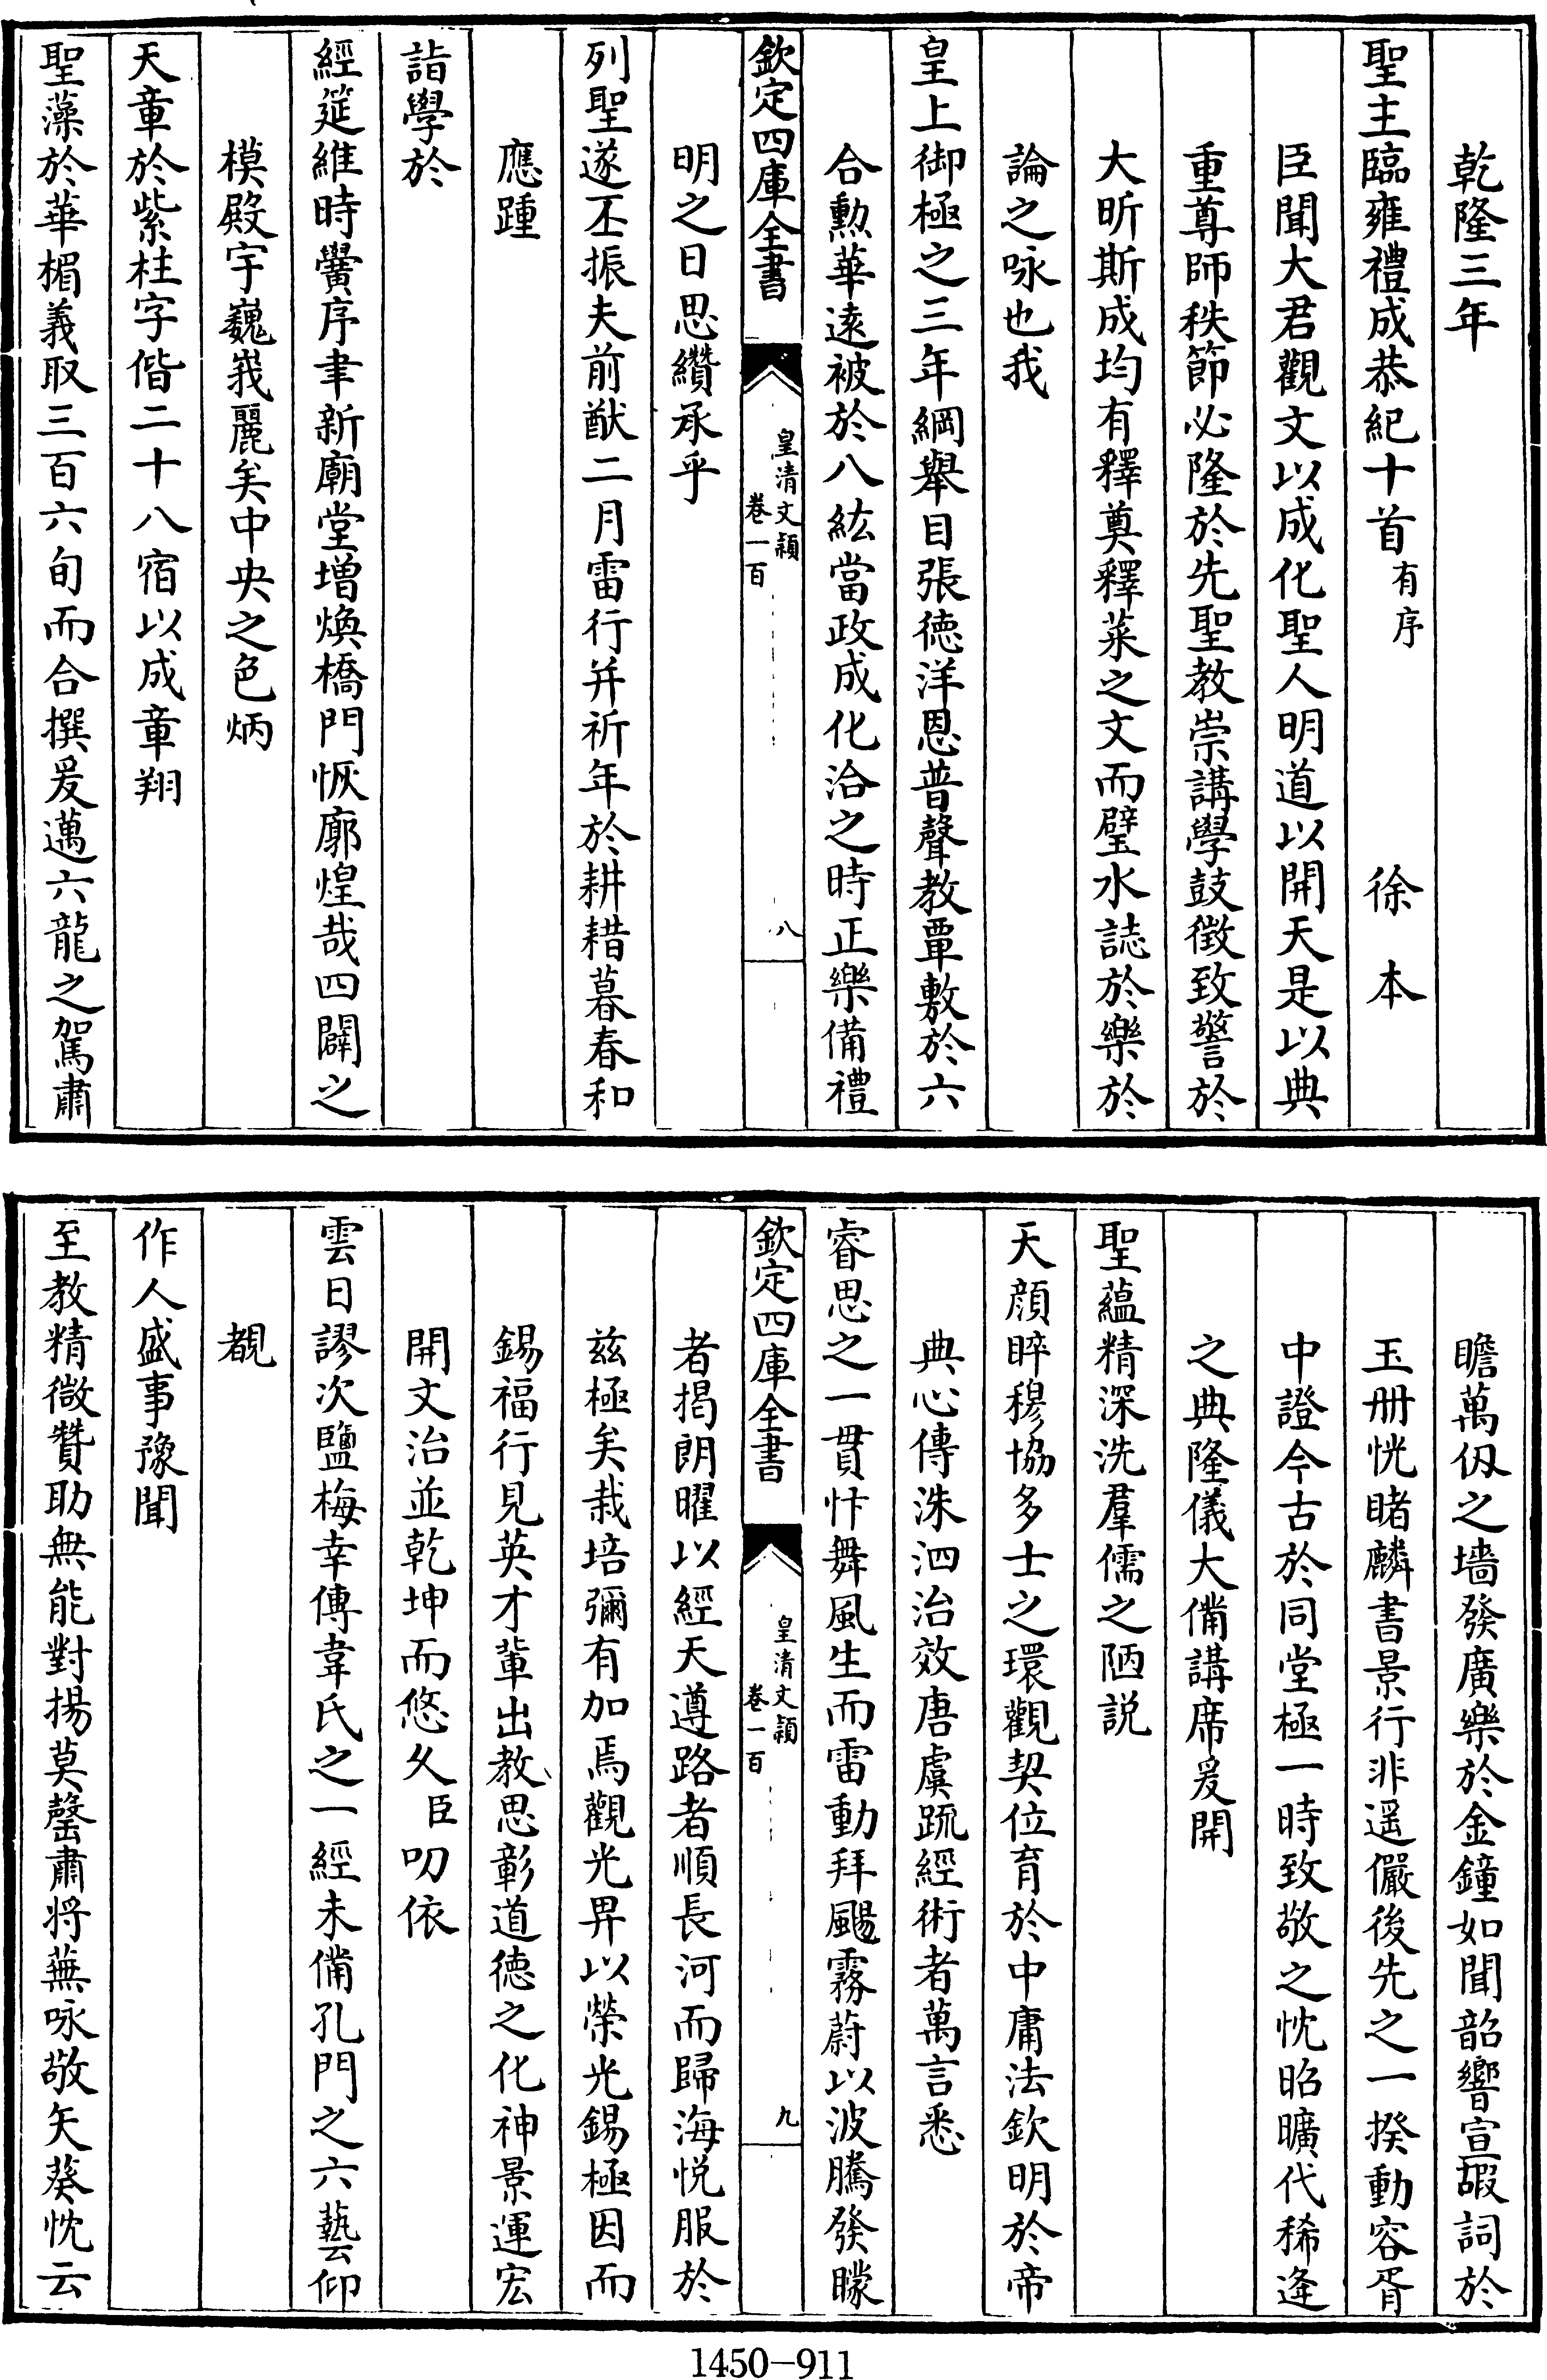 乾隆三年
聖主臨雍禮成恭紀十首有序 徐本
臣聞大君觀文以成化聖人明道以開天是以典
重尊師秩節必隆於先聖教崇講學鼓徵致警於
大昕斯成均有釋奠釋菜之文而璧水誌於樂於
論之咏也我
皇上御極之三年綱舉目張德洋恩普聲教覃敷於六
合勲華遠被於八紘當政成化洽之時正樂備禮
欽定四庫全書 皇清文穎 卷一百 八
明之日思纘承乎
列聖遂丕振夫前猷二月雷行并祈年於耕耤暮春和
應踵
詣學於
經筵維時黌序聿新廟堂增煥橋門恢廓煌哉四闢之
模殿宇巍峩麗矣中央之色炳
天章於紫柱字偕二十八宿以成章翔
聖藻於華楣義取三百六旬而合撰爰邁六龍之駕肅
瞻萬仭之墻發廣樂於金鐘如聞韶響宣嘏詞於
玉冊恍睹麟書景行非遥儼後先之一揆動容胥
中證今古於同堂極一時致敬之忱昭曠代稀逢
之典隆儀大備講席爰開
聖蘊精深洗羣儒之陋説
天顔睟穆協多士之環觀契位育於中庸法欽明於帝
典心傳洙泗治效唐虞䟽經術者萬言悉
睿思之一貫忭舞風生而雷動拜颺霧蔚以波騰發矇
欽定四庫全書 皇清文穎 卷一百 九
者揭朗曜以經天遵路者順長河而歸海悦服於
兹極矣栽培彌有加焉觀光畀以榮光錫極因而
錫福行見英才輩出教思彰道德之化神景運宏
開文治並乾坤而悠久臣叨依
雲日謬次鹽梅幸傳韋氏之一經未備孔門之六藝仰
覩
作人盛事豫聞
至教精微贊助無能對揚莫罄肅将蕪咏敬矢葵忱云
1450-911